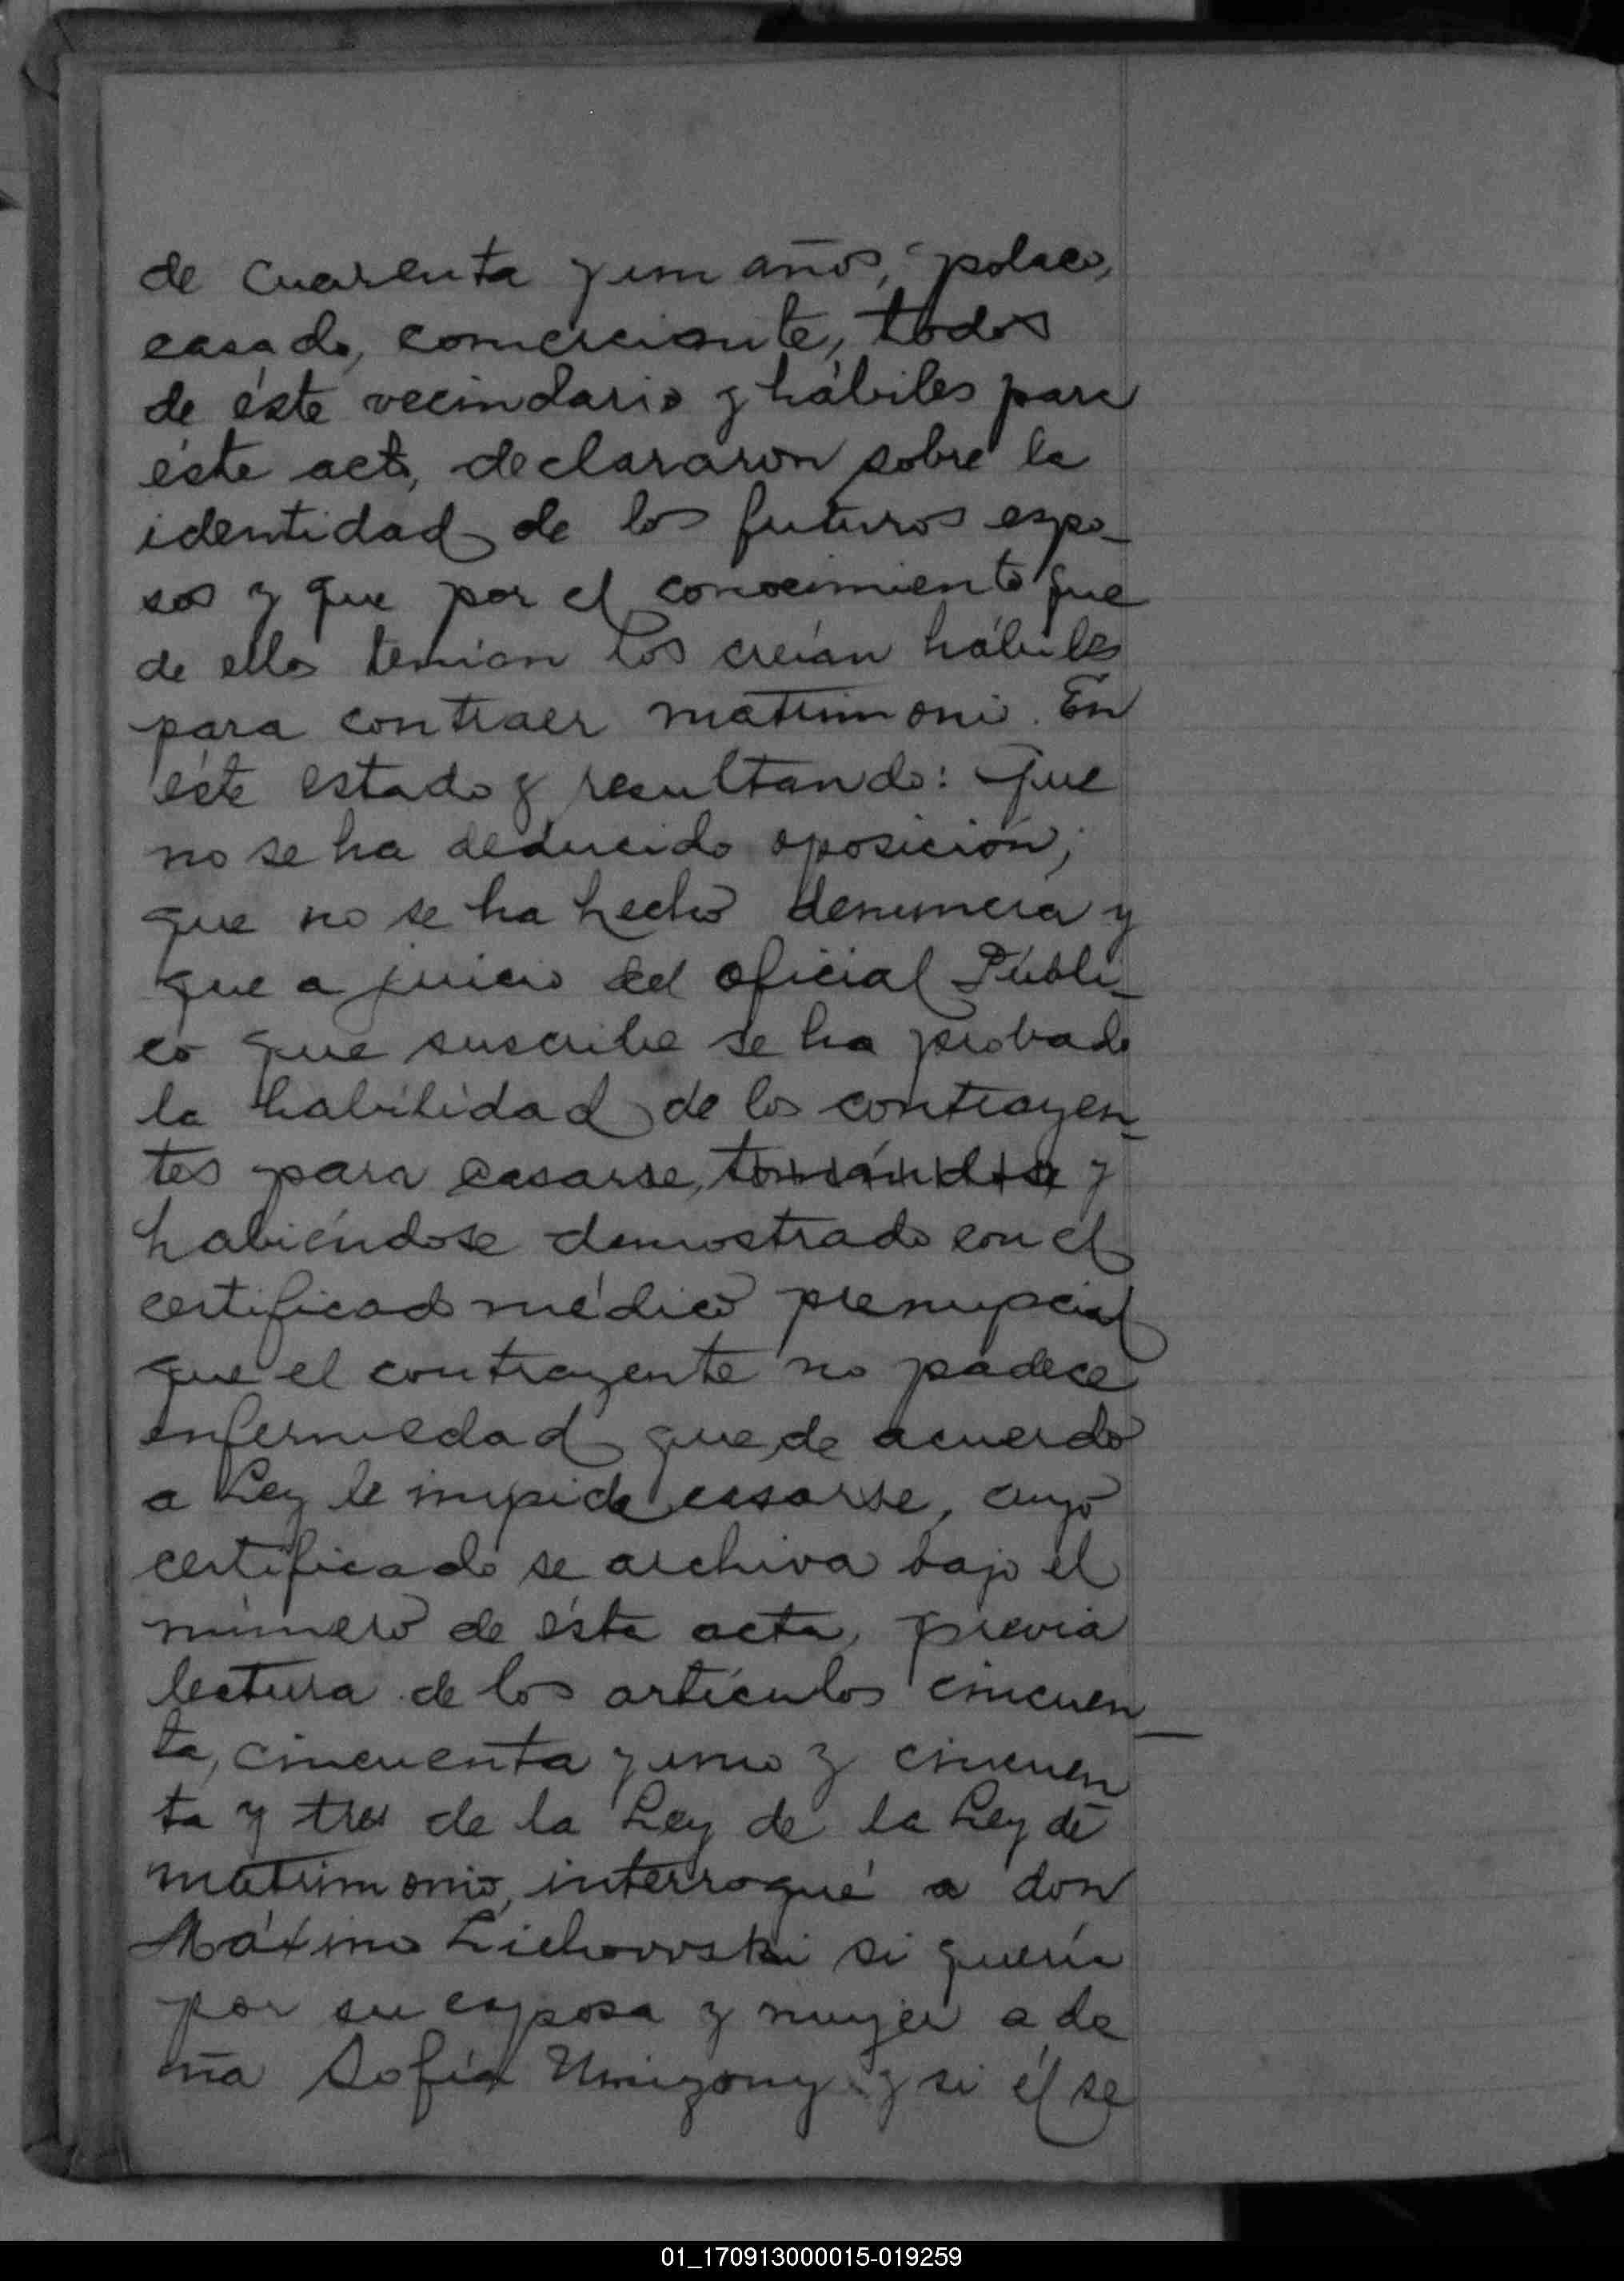 de cuarenta y un años, polaco,
casado, comerciante, todos
de éste vecindario y hábiles para
éste acto, declararon sobre la
identidad de los futuros espo-
sos y que por el conocimiento que
de ellos tenían los creían hábiles
para contraer matrimonio. En
éste estado y resultando: Que
no se ha deducido oposición;
que no se ha hecho denuncia y
que a juicio del oficial Públi-
co que suscribe se ha probado
la habilidad de los contrayen-
tes para casarse, y
habiéndose demostrado con el
certificado médico prenupcial
que el contrayente no padece
enfermedad que, de acuerdo
a Ley le impida casarse, cuyo
certificado se archiva bajo el
número de ésta acta, previa
lectura de los artículos cincuen-
ta, cincuenta y uno y cincuen
ta y tres de la Ley de la Ley de
matrimonio, interrogué a don
Máximo Lichowski si quería
por su esposa y mujer a do
ña Sofía y si él se
01_170913000015-019259